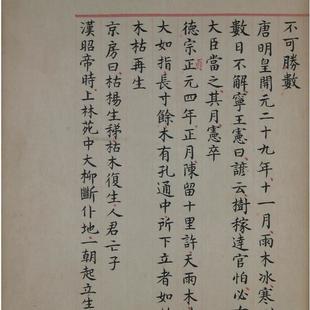 不可勝數
唐明皇開元二十九年十一月雨木冰寒
數日不解寧王憲曰諺云樹稼達官怕必有
大臣當之其月憲卒
德宗正元四年正月陳留十里許天雨木
大如指長寸餘木有孔通中所下立者如
木枯再生
京房曰枯楊生稊枯木復生人君亡子
漢昭帝時上林苑中大柳斷仆地一朝起立生